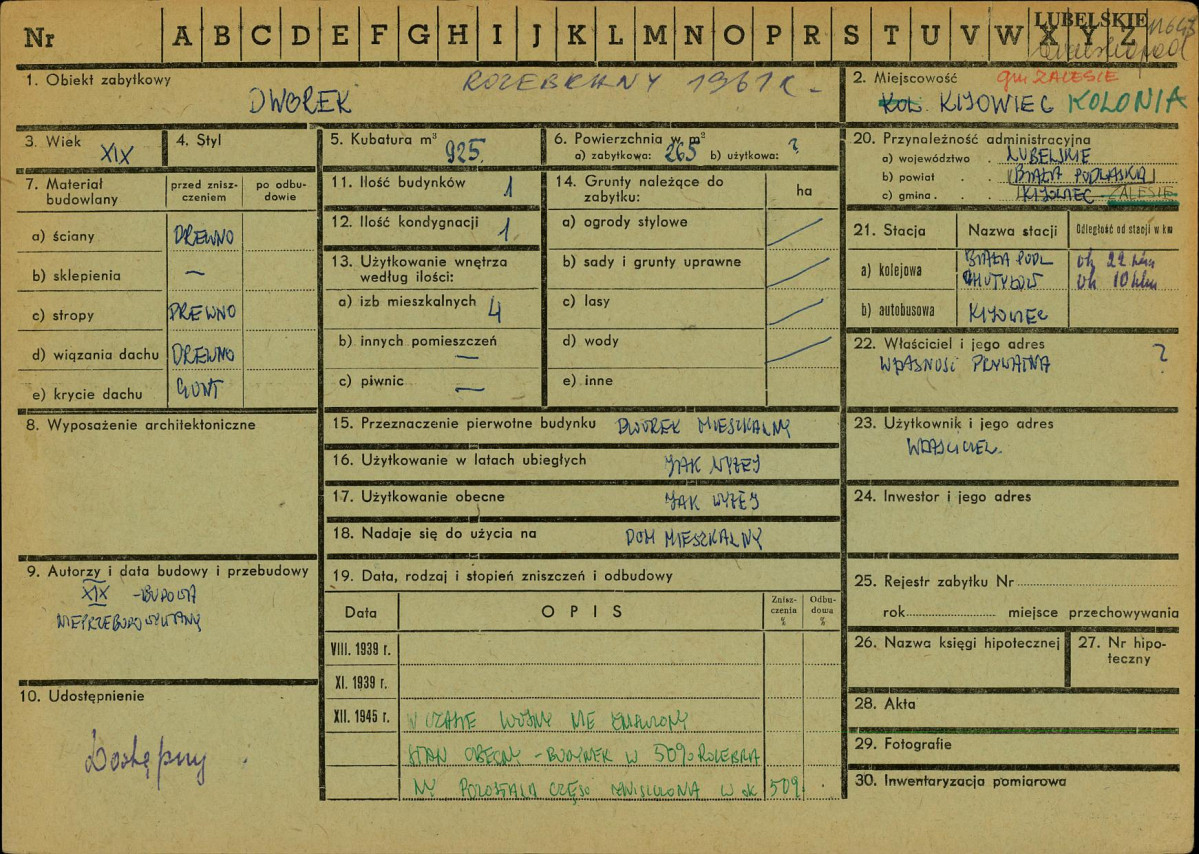 Nr A B C D E F G H I J K L M N O P R S T U V W X Y Z
LUBELSKIE
1. Obiekt zabytkowy
ROZEBRANY 1961 r.
DWOREK
2. Miejscowość gm ZALESIE
KOL. KIJOWIEC KOLONIA
3. Wiek XIX
4. Styl
5. Kubatura m³ 925.
6. Powierzchnia w m²
a) zabytkowa: 265 b) użytkowa: ?
7. Materiał budowlany
przed znisz-
czeniem
po odbu-
dowie
a) ściany DREWNO
b) sklepienia —
c) stropy DREWNO
d) wiązania dachu DREWNO
e) krycie dachu GONT
8. Wyposażenie architektoniczne
9. Autorzy i data budowy i przebudowy
XIX - BUDOWA
NIEPRZEBUDOWYWANY
10. Udostępnienie
Dostępny
11. Ilość budynków 1
12. Ilość kondygnacji 1.
13. Użytkowanie wnętrza
według ilości:
a) izb mieszkalnych 4
b) innych pomieszczeń —
c) piwnic —
14. Grunty należące do
zabytku:
ha
a) ogrody stylowe
b) sady i grunty uprawne
c) lasy
d) wody
e) inne
15. Przeznaczenie pierwotne budynku DWOREK MIESZKALNY
16. Użytkowanie w latach ubiegłych JAK WYŻEJ
17. Użytkowanie obecne JAK WYŻEJ
18. Nadaje się do użycia na DOM MIESZKALNY
19. Data, rodzaj i stopień zniszczeń i odbudowy
Data
OPIS
Znisz-
czenia
%
Odbu-
dowa
%
VIII. 1939 r.
XI. 1939 r.
XII. 1945 r. W CZASIE WOJNY NIE ZNISZCZONY
STAN OBECNY - BUDYNEK W 50% ROZEBRA
NY POZOSTAŁA CZĘŚĆ ZNISZCZONA W ok 50%
20. Przynależność administracyjna
a) województwo LUBELSKIE
b) powiat BIAŁA PODLASKA
c) gmina KIJOWIEC ZALESIE
21. Stacja
Nazwa stacji
Odległość od stacji w km
a) kolejowa BIAŁA PODL ok 22 km
CHOTYŁÓW ok 10 km
b) autobusowa KIJOWIEC
22. Właściciel i jego adres
WŁASNOŚĆ PRYWATNA ?
23. Użytkownik i jego adres
WŁAŚCICIEL.
24. Inwestor i jego adres
25. Rejestr zabytku Nr
rok miejsce przechowywania
26. Nazwa księgi hipotecznej
27. Nr hipo-
teczny
28. Akta
29. Fotografie
30. Inwentaryzacja pomiarowa